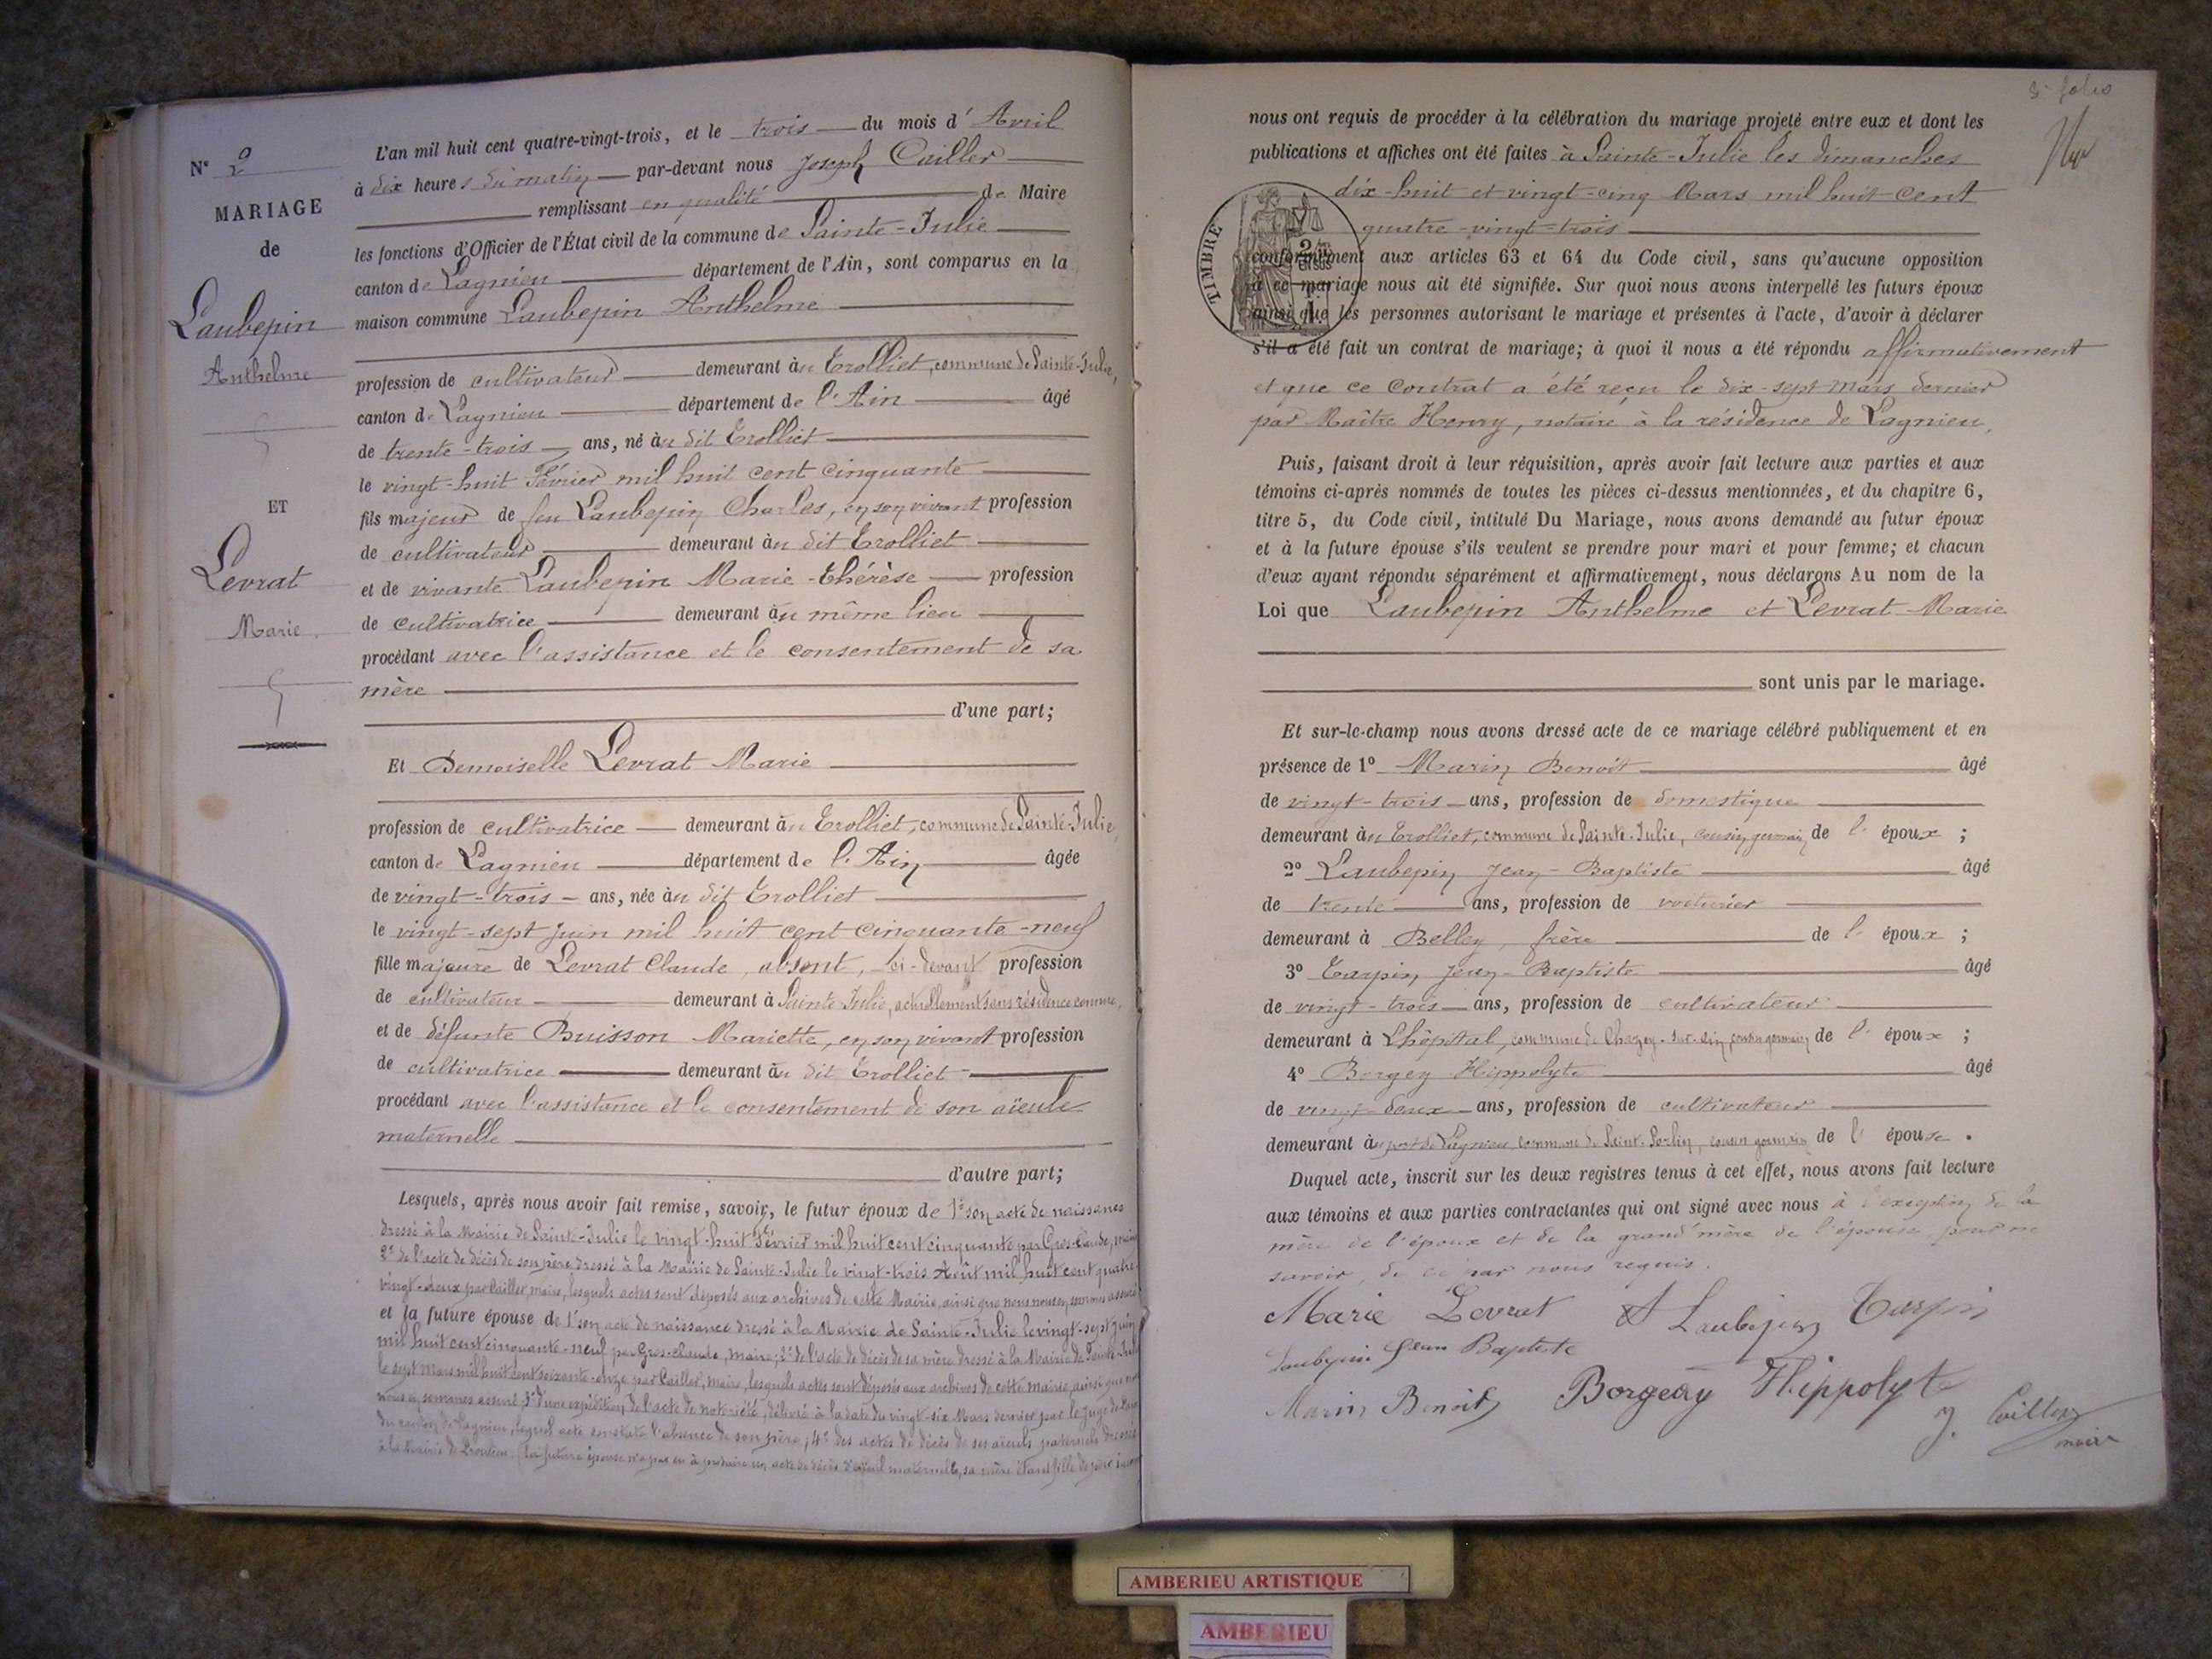 Nº 2
MARIAGE
de
Laubepin
Anthelme
ET
Levrat
Marie
L'an mil huit cent quatre-vingt-trois, et le trois du mois d'Avril
à dix heures du matin par-devant nous Joseph Cailler
remplissant en qualité de Maire
les fonctions d'Officier de l'État civil de la commune de Sainte-Julie
canton de Lagnieu département de l'Ain, sont comparus en la
maison commune Laubepin Anthelme
profession de cultivateur demeurant au Trolliet, commune de Sainte-Julie,
canton de Lagnieu département de l'Ain âgé
de trente-trois ans, né au dit Trolliet
le vingt-huit Février mil huit cent cinquante
fils majeur de feu Laubepin Charles, en son vivant profession
de cultivateur demeurant au dit Trolliet
et de vivante Laubepin Marie-Thérèse profession
de cultivatrice demeurant au même lieu
procédant avec l'assistance et le consentement de sa
mère
d'une part;
Et Demoiselle Levrat Marie
profession de cultivatrice demeurant au Trolliet, commune de Sainte-Julie,
canton de Lagnieu département de l'Ain âgée
de vingt-trois ans, née au dit Trolliet
le vingt-sept Juin mil huit cent cinquante-neuf
fille majeure de Levrat Claude, absent, ci-devant profession
de cultivateur demeurant à Sainte-Julie, actuellement sans résidence connue,
et de défunte Buisson Mariette, en son vivant profession
de cultivatrice demeurant au dit Trolliet
procédant avec l'assistance et le consentement de son aïeule
maternelle
d'autre part;
Lesquels, après nous avoir fait remise, savoir, le futur époux de 1º son acte de naissance
dressé à la Mairie de Sainte-Julie le vingt-huit Février mil huit cent cinquante par Gros-Claude, maire
2º de l'acte de décès de son père dressé à la Mairie de Sainte-Julie le vingt-trois Août mil huit cent quatre
vingt-deux par Cailler, maire, lesquels actes sont déposés aux archives de cette Mairie, ainsi que nous nous en sommes assuré
et la future épouse de 1º son acte de naissance dressé à la Mairie de Sainte-Julie le vingt-sept Juin
mil huit cent cinquante-neuf par Gros-Claude, maire; 2º de l'acte de décès de sa mère dressé à la Mairie de Sainte-Julie
le sept Mars mil huit cent soixante-onze par Cailler, maire, lesquels actes sont déposés aux archives de cette mairie, ainsi que
nous en sommes assuré; 3º d'une expédition de l'acte de notoriété, délivré à la date du vingt-six Mars dernier par le Juge de Paix
du canton de Lagnieu, lequel acte constate l'absence de son père; 4º des actes de décès de ses aïeuls paternels dressés
à la Mairie de (la future épouse n'a pas eu à produire un acte de décès d'aïeul maternel, sa mère étant fille de père
3e folio
nous ont requis de procéder à la célébration du mariage projeté entre eux et dont les
publications et affiches ont été faites à Sainte-Julie les dimanches
dix-huit et vingt-cinq Mars mil huit cent
quatre-vingt-trois
TIMBRE
conformément aux articles 63 et 64 du Code civil, sans qu'aucune opposition
à ce mariage nous ait été signifiée. Sur quoi nous avons interpellé les futurs époux
ainsi que les personnes autorisant le mariage et présentes à l'acte, d'avoir à déclarer
s'il a été fait un contrat de mariage; à quoi il nous a été répondu affirmativement
et que ce contrat a été reçu le dix-sept mars dernier
par Maître Henry, notaire à la résidence de Lagnieu,
Puis, faisant droit à leur réquisition, après avoir fait lecture aux parties et aux
témoins ci-après nommés de toutes les pièces ci-dessus mentionnées, et du chapitre 6,
titre 5, du Code civil, intitulé Du Mariage, nous avons demandé au futur époux
et à la future épouse s'ils veulent se prendre pour mari et pour femme; et chacun
d'eux ayant répondu séparément et affirmativement, nous déclarons Au nom de la
Loi que Laubepin Anthelme et Levrat Marie
sont unis par le mariage.
Et sur-le-champ nous avons dressé acte de ce mariage célébré publiquement et en
présence de 1º Marin Benoit âgé
de vingt-trois ans, profession de domestique
demeurant au Trolliet, commune de Sainte-Julie, cousin germain de l'époux;
2º Laubepin Jean-Baptiste âgé
de trente ans, profession de voiturier
demeurant à Belley, frère de l'époux;
3º Tarpin Jean-Baptiste âgé
de vingt-trois ans, profession de cultivateur
demeurant à Lhôpital, commune de Chazey-sur-Ain, cousin germain de l'époux;
4º Borgey Hippolyte âgé
de vingt-deux ans, profession de cultivateur
demeurant au port de Lagnieu, commune de Saint-Sorlin, cousin germain de l'épouse.
Duquel acte, inscrit sur les deux registres tenus à cet effet, nous avons fait lecture
aux témoins et aux parties contractantes qui ont signé avec nous à l'exception de la
mère de l'époux et de la grand'mère de l'épouse, pour ne
savoir, de ce par nous requis.
Marie Levrat A Laubepin Tarpin
Laubepin Jean Baptiste
Marin Benoit Borgeay Hippolyte
J. Cailler
maire
AMBERIEU ARTISTIQUE
AMBERIEU